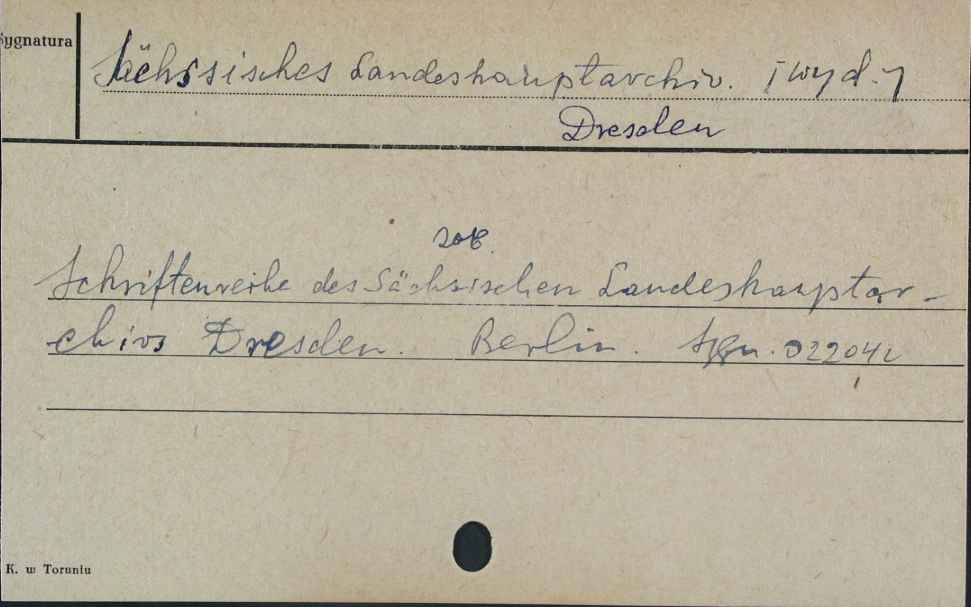 Sygnatura
Sächsisches Landeshauptarchiv. [wyd.]
Dresden
zob.
Schriftenreihe des Sächsischen Landeshauptar-
chivs Dresden. Berlin. Sygn. 022042
K. w Toruniu